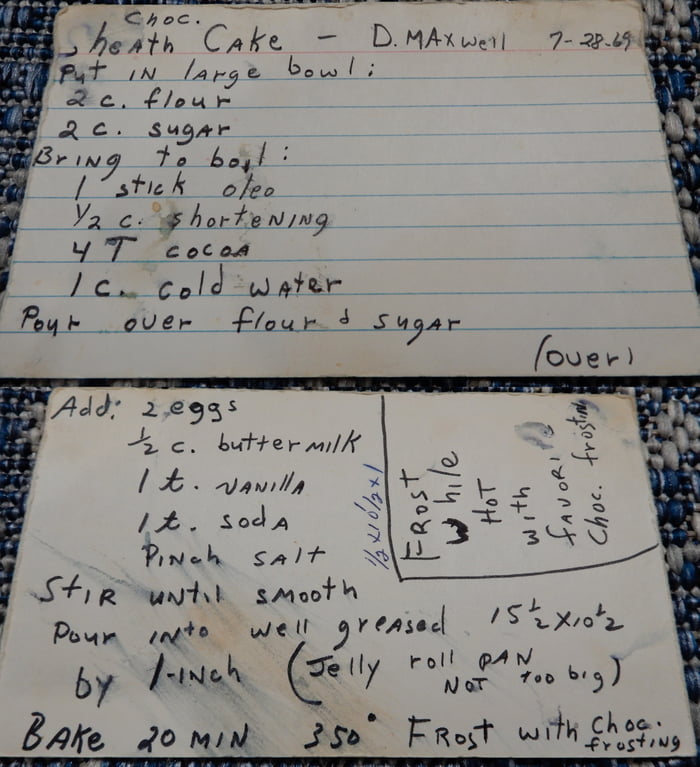 Choc.
Sheath Cake - D. Maxwell 7-28-69
Put in large bowl:
2 c. flour
2 c. sugar
Bring to boil:
1 stick oleo
1/2 c. shortening
4 T cocoa
1 c. cold water
Pour over flour & sugar
(over)
Add: 2 eggs
1/2 c. buttermilk
1 t. vanilla
1 t. soda
Pinch salt
Stir until smooth
Pour into well greased 15 1/2 x 10 1/2
by 1-inch (Jelly roll pan
not too big)
Bake 20 min 350° Frost with Choc.
frosting
1/2 x 10 1/2 x 1
Frost
while
hot
with
favorite
Choc. frosting